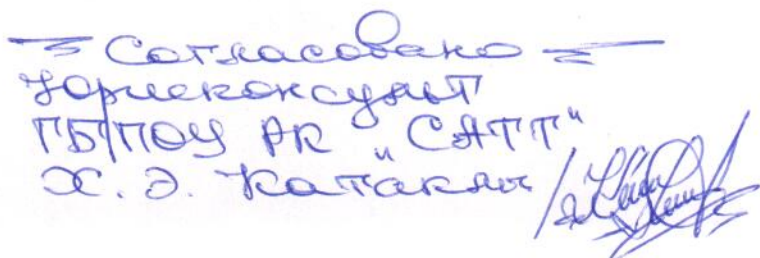 Согласовано
Юрисконсульт
ГБПОУ РК "САТТ"
Х. Э. Катаклы